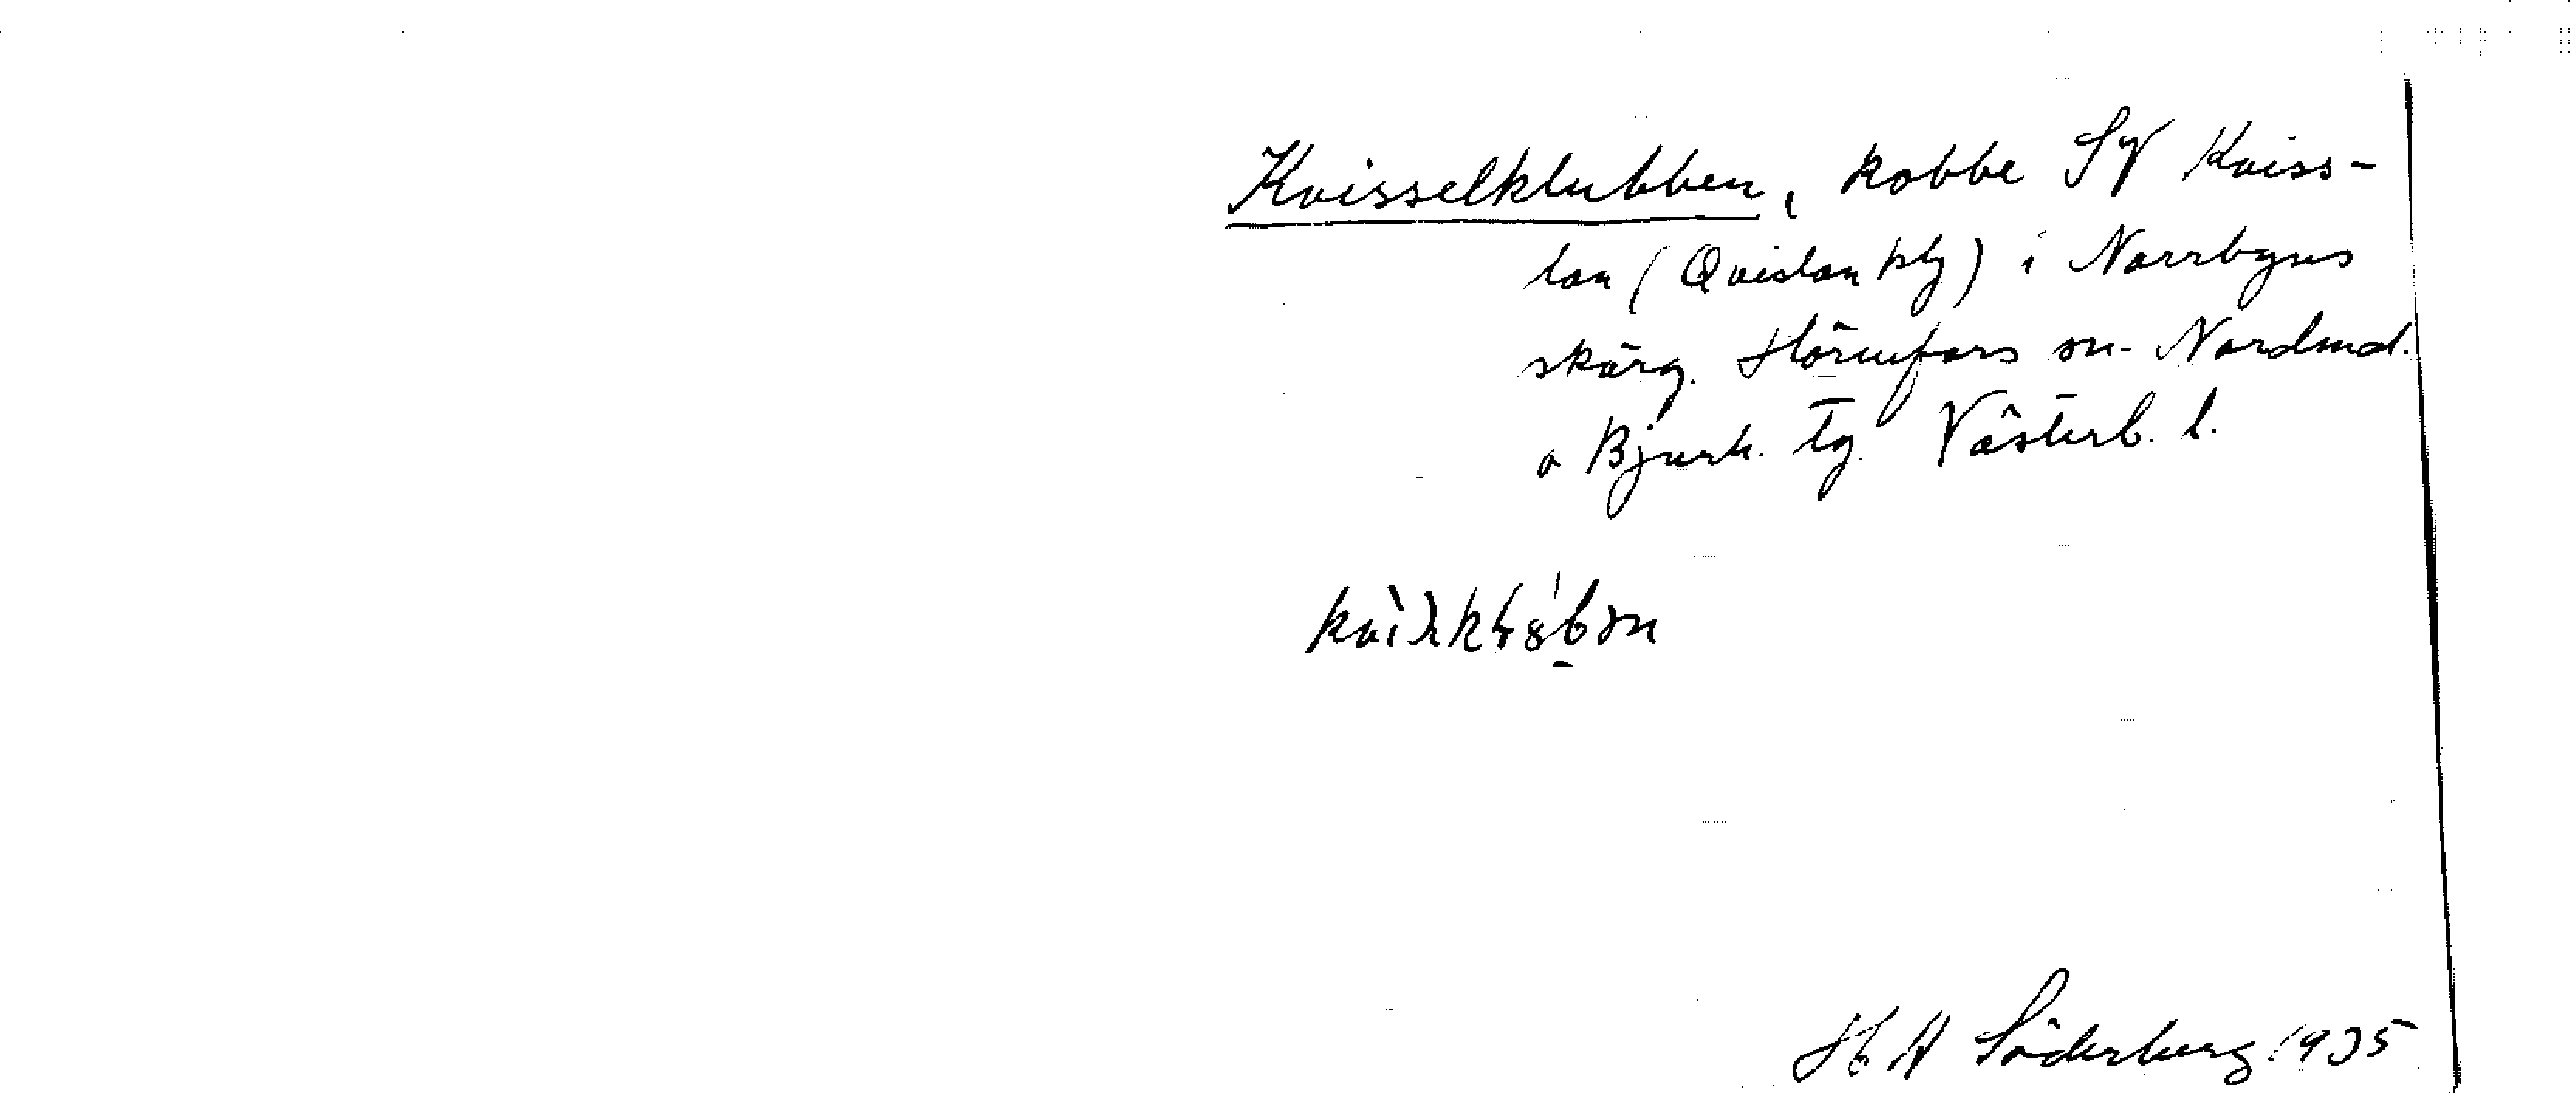 Kvisselklubben, kobbe SV Kviss-
lan (Qvislan blg) i Norrbyns
skärg. Hörnefors sn. Nordmal.
o Bjurh. tg. Västerb. l.
H A Söderberg 1935